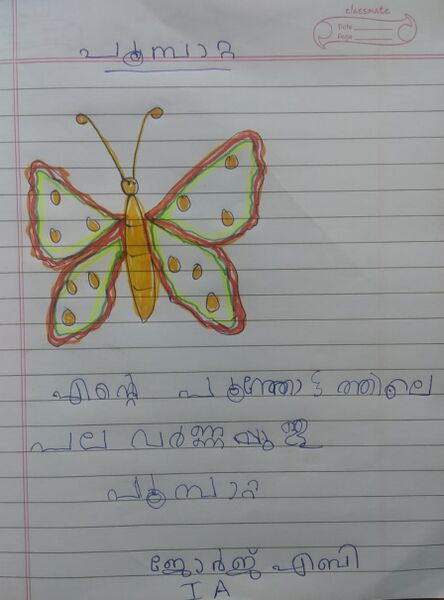 classmate
Date
Page
പൂമ്പാറ്റ
എന്റെ പൂന്തോട്ടത്തിലെ
പല വർണ്ണ
പൂമ്പാറ്റ
ജോർജ് എബി
I A